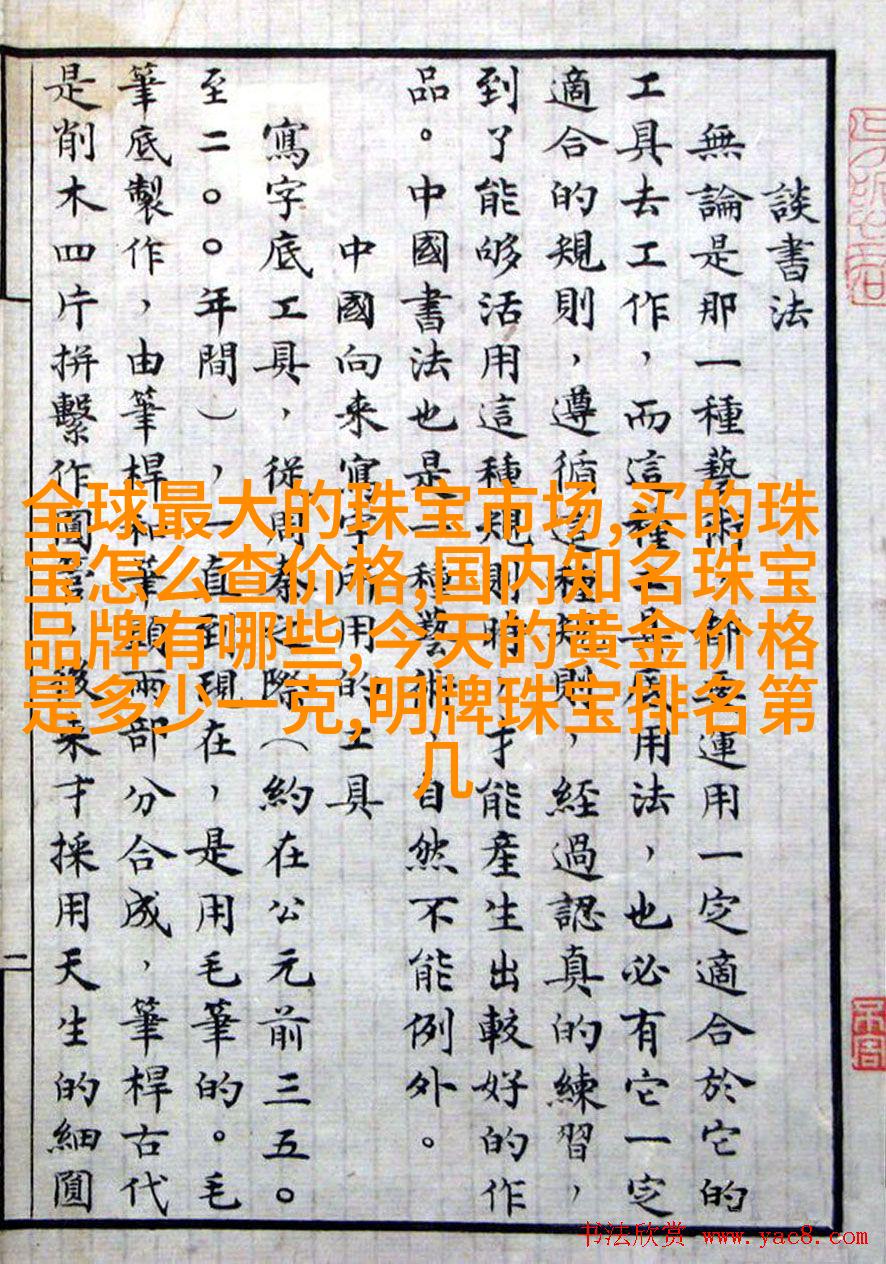 談書法
無論是那一種藝術，運用一定適合於它的
工具去工作，而這種工具底用法，也必有它一定
適合的規則，遵循這種規則，經過認真的練習，
到了能够活用這種規則時，才能產生出較好的作
品。中國書法也是一種藝術，自然不能例外。
中國向来寫字所用的工具
寫字底工具，從周秦之際（約在公元前三五〇
至二〇〇年間），一直到現在，是用毛筆的。毛
筆底製作，由筆桿和筆頭兩部分合成，筆桿古代
是削木四片拼繫作圓管，後来才採用天生的細圓
二
全球最大的珠宝市场,买的珠
宝怎么查价格,国内知名珠宝
品牌有哪些,今天的黄金价格
是多少一克,明牌珠宝排名第
几
书法欣赏 www.yac8.com